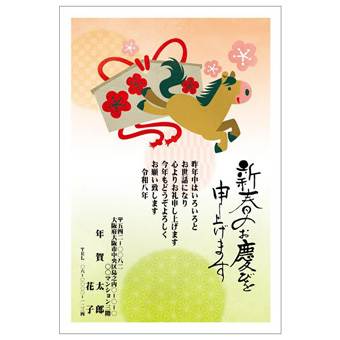 新春のお慶びを
申し上げます
昨年中はいろいろと
お世話になり
心よりお礼申し上げます
今年もどうぞよろしく
お願い致します
令和八年
大阪府大阪市中央区島之内一-〇-一〇
〇〇マンション二階
年賀 太郎
花子